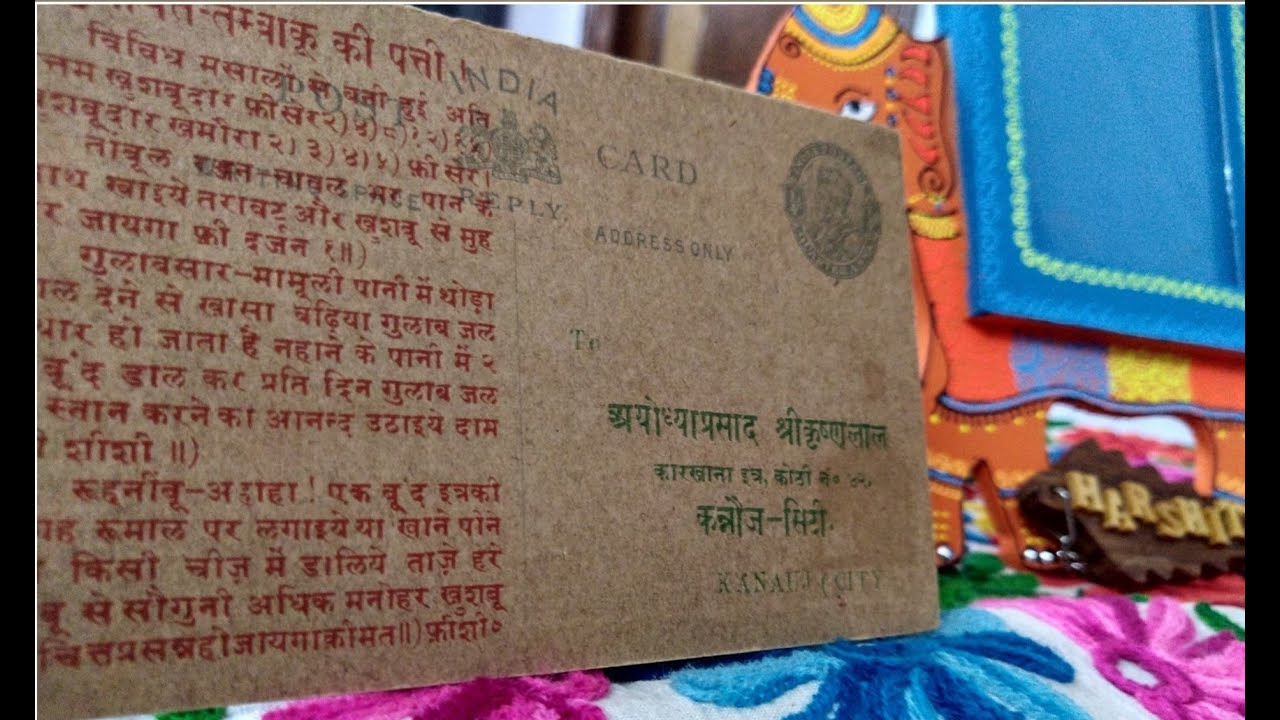 तम्बाकू की पत्ती ।
विविध मसालों से बनी हुई अति
त्तम खुशबूदार फ़ी सेर २) ४) ८)
शबूदार खमीरा २) ३) ४) ५) फ़ी सेर।
तांबूल रंजन-चावल भर पान के
साथ खाइये तरावट और खुशबू से मुह
र जायगा फ़ी दर्जन १॥)
गुलाबसार-मामूली पानी में थोड़ा
ाल देने से खासा बढ़िया गुलाब जल
यार हो जाता है नहाने के पानी में २
बूंद डाल कर प्रति दिन गुलाब जल
स्नान करने का आनन्द उठाइये दाम
ी शीशी ॥)
रूहनीबू-अहाहा! एक बूंद इत्रकी
रूमाल पर लगाइये या खाने पीने
किसी चीज़ में डालिये ताज़े हरे
बू से सौगुनी अधिक मनोहर खुशबू
चित्तप्रसन्नहोजायगाक़ीमत॥) फ़ीशी०
INDIA
POST CARD
REPLY.
ADDRESS ONLY
To
अयोध्याप्रसाद श्रीकृष्णलाल
कारखाना इत्र, कोठी नं०
कन्नौज-सिटी.
KANAUJ (CITY
HARSHIT